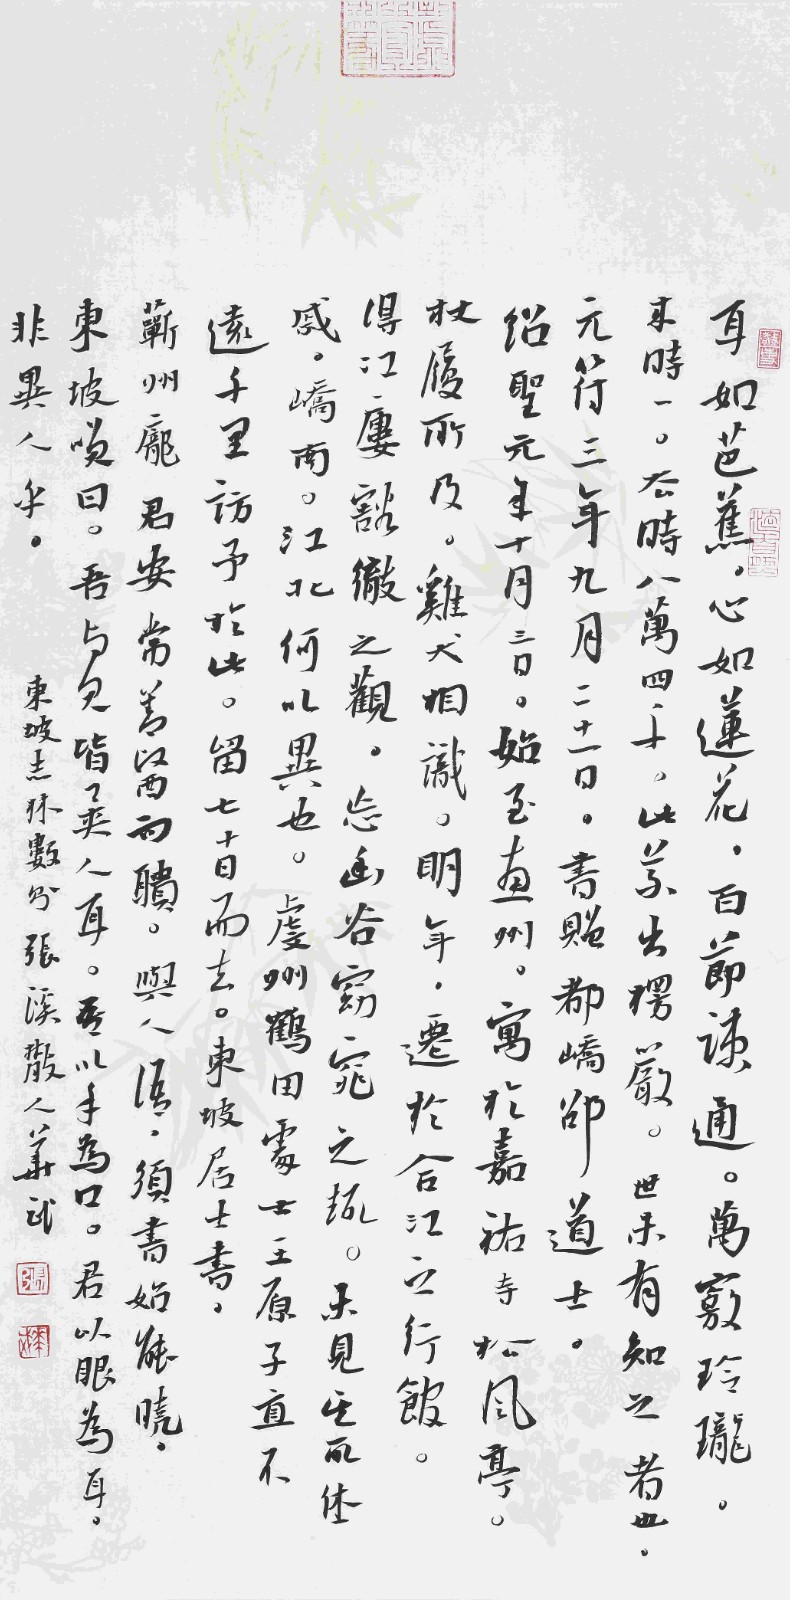 耳如芭蕉。心如蓮花。百節疎通。萬竅玲瓏。
來時一。去時八萬四千。此義出楞嚴。世未有知之者也。
元符三年九月二十一日。書贈都嶠邵道士。
紹聖元年十月三日。始至惠州。寓於嘉祐寺松風亭。
杖履所及。雞犬相識。明年。遷於合江之行館。
得江廔豁徹之觀。忘幽谷窈窕之趣。未見其所休
戚。嶠南。江北何以異也。虔州鶴田處士王原子直不
遠千里訪予於此。留七十日而去。東坡居士書。
蘄州龐君安常善醫而聵。與人語。須書始能曉。
東坡嘆曰。吾與君皆異人耳。吾以手為口。君以眼為耳。
非異人乎。
東坡志林數則 張溪散人華武